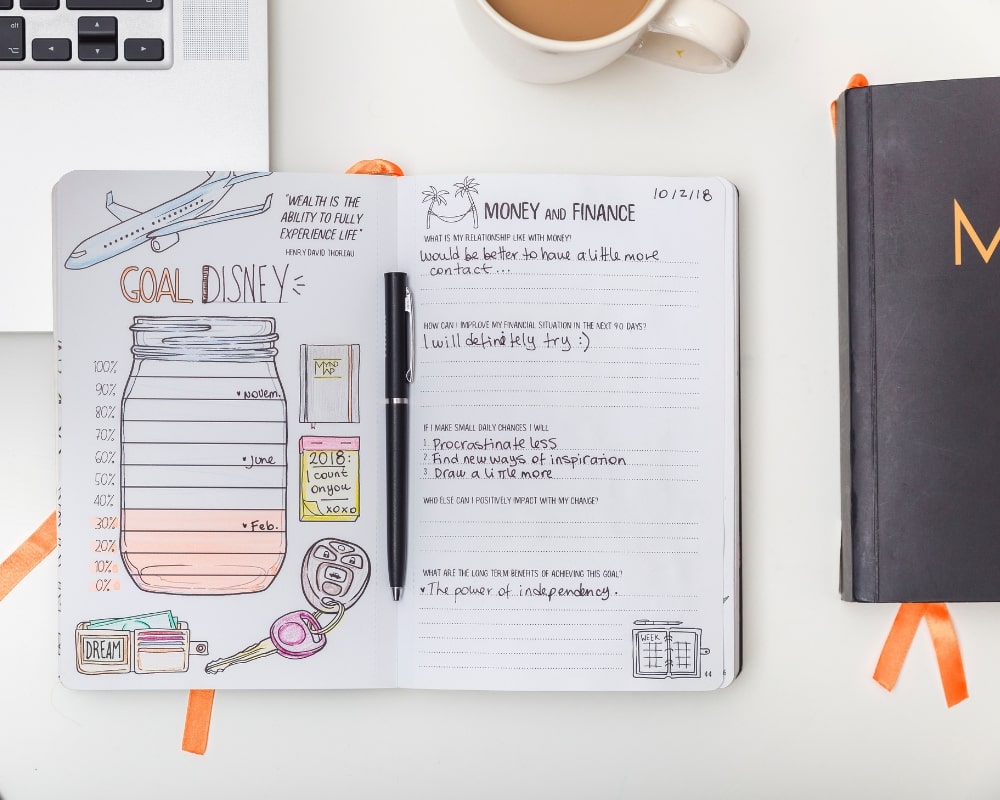 alt
"WEALTH IS THE
ABILITY TO FULLY
EXPERIENCE LIFE"
HENRY DAVID THOREAU
GOAL DISNEY
100%
90%
80%
70%
60%
50%
40%
30%
20%
10%
0%
♥ Novem.
♥ June
♥ Feb.
MYND
MAP
2018:
I count
on you
xoxo
DREAM
10/2/18
MONEY AND FINANCE
WHAT IS MY RELATIONSHIP LIKE WITH MONEY?
Would be better to have a little more
contact...
HOW CAN I IMPROVE MY FINANCIAL SITUATION IN THE NEXT 90 DAYS?
I will definitely try :)
IF I MAKE SMALL DAILY CHANGES I WILL
1. Procrastinate less
2. Find new ways of inspiration
3. Draw a little more
WHO ELSE CAN I POSITIVELY IMPACT WITH MY CHANGE?
WHAT ARE THE LONG TERM BENEFITS OF ACHIEVING THIS GOAL?
♥ The power of independency.
WEEK
44
M